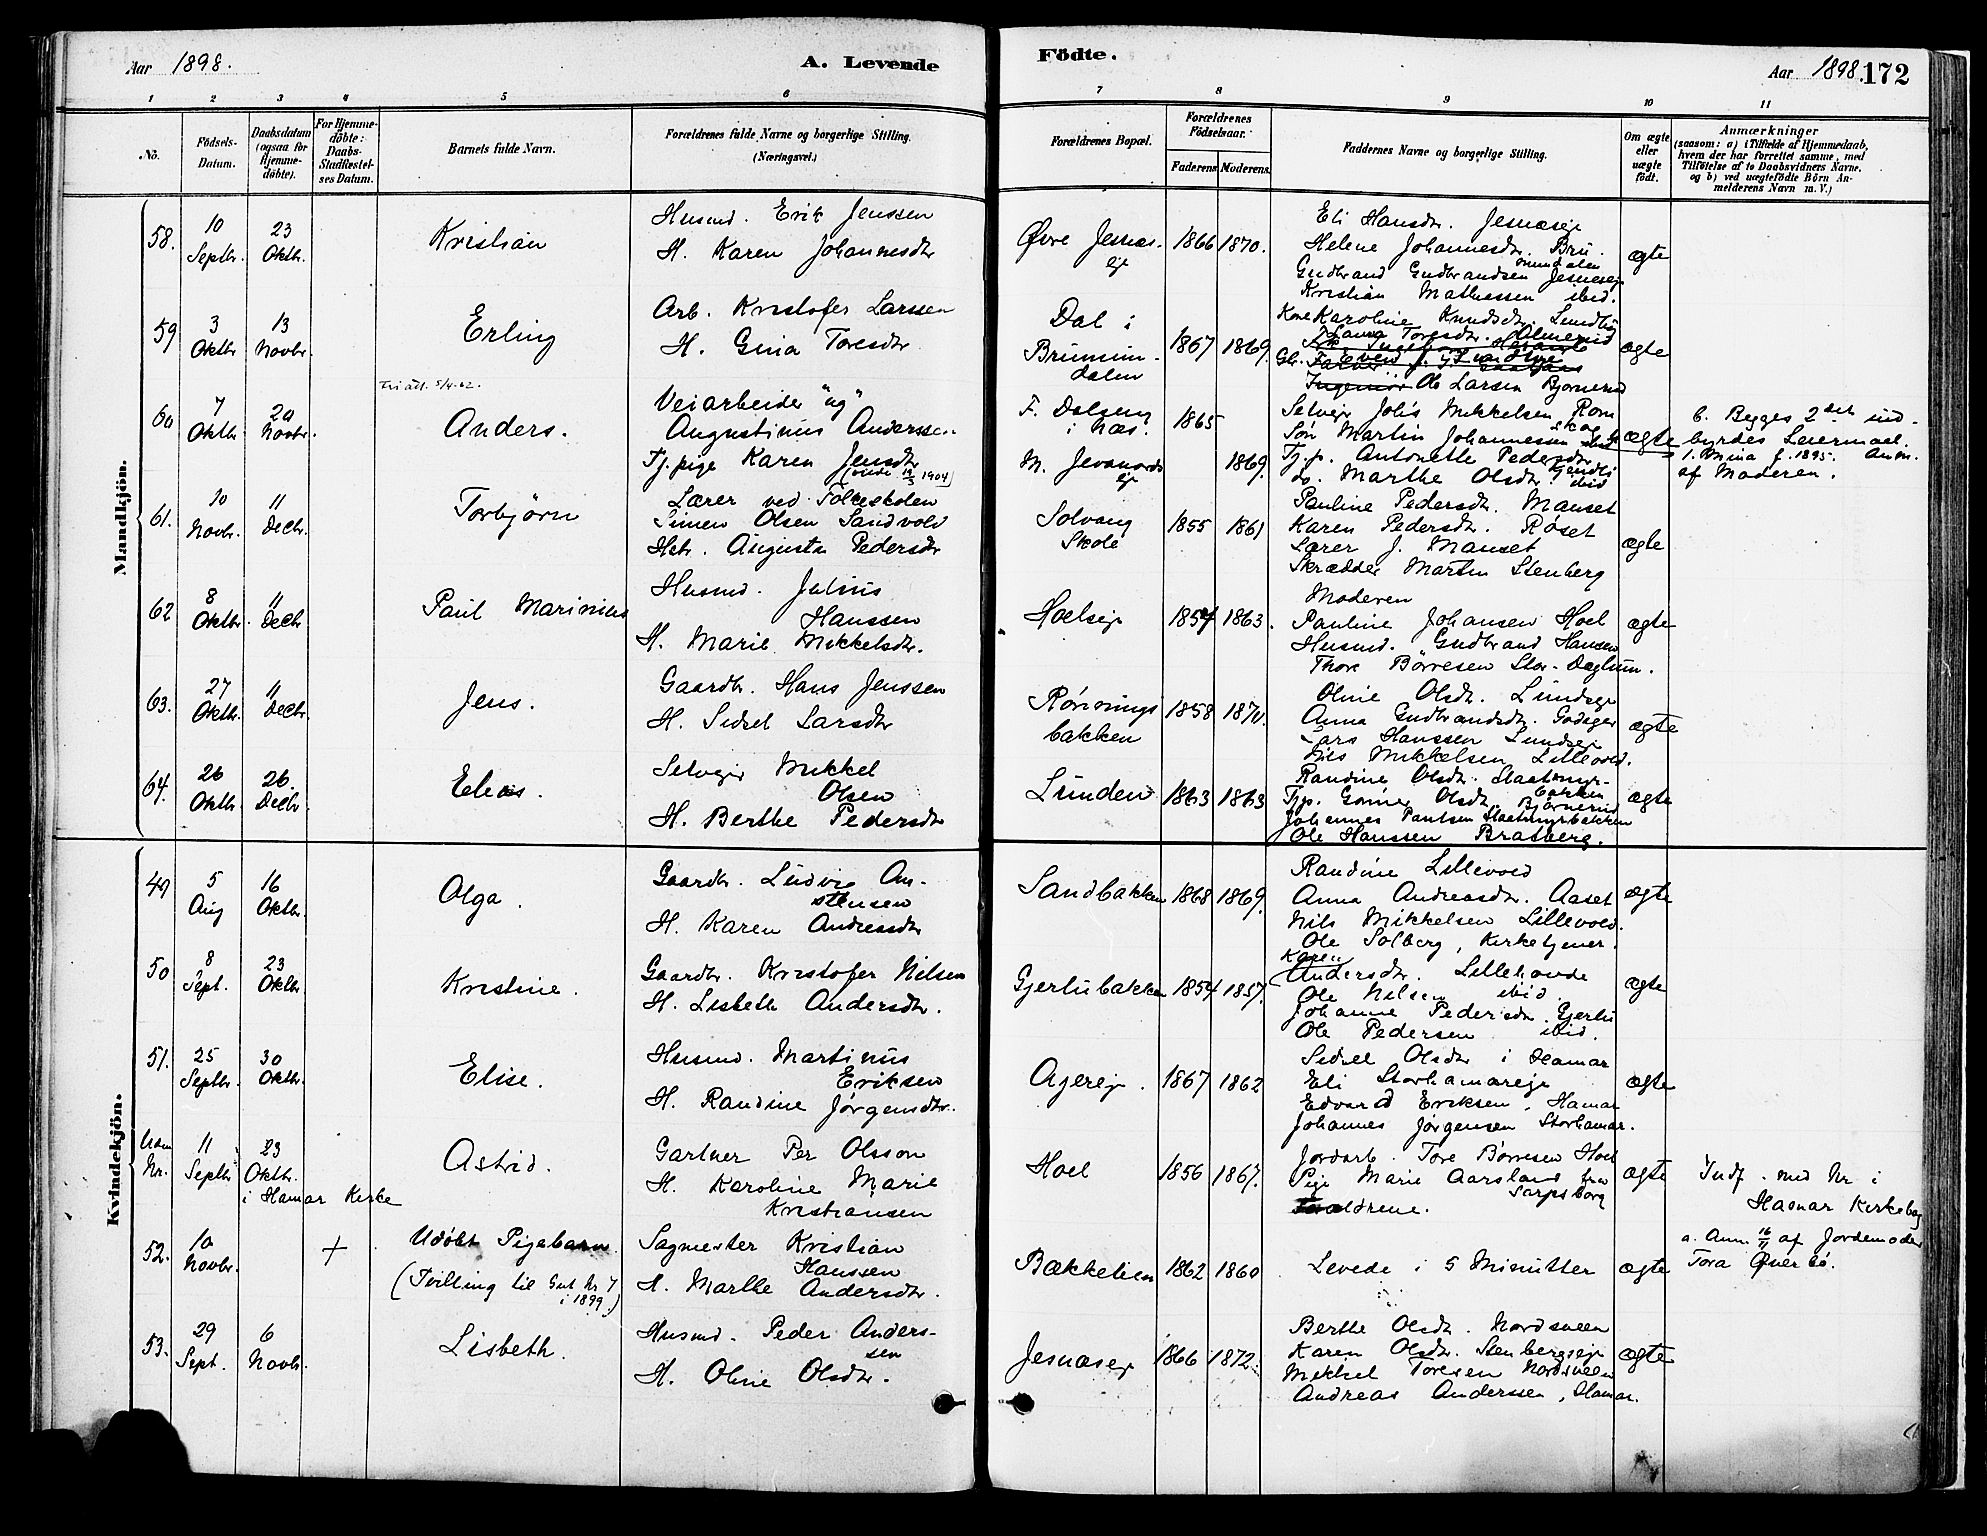 Aar 1898.
A. Levende
Födte.
Aar 1898. 172
1 2 3 4 5 6 7 8 9 10 11
No.
Födsels-Datum.
Daabsdatum (ogsaa for Hjemmedöbte).
For Hjemmedöbte: Daabs-Stadfæstelses Datum.
Barnets fulde Navn.
Forældrenes fulde Navne og borgerlige Stilling. (Næringsvei.)
Forældrenes Bopæl.
Forældrenes Födselsaar.
Faderens. Moderens.
Faddernes Navne og borgerlige Stilling.
Om ægte eller uægte födt.
Anmærkninger
(saasom: a) i Tilfælde af Hjemmedaab, hvem der har forrettet samme, med Tilföielse af to Daabsvidners Navne. og b) ved uægtefödte Börn Anmelderens Navn m. V.)
Mandkjön.
58. 10 Septbr. 23 Oktbr. Kristian
Husmd. Erik Jenssen
H. Karen Johannesdtr
Øvre Jesnæs-eje 1866 1870.
Eli Hansdr. Jesnæseje
Helene Johannesdtr. Brumundalen
Gudbrand Gudbrandsen Jesnæseje
Kristian Mathiassen ibid.
ægte
59 3 Oktbr 13 Novbr. Erling
Arb. Kristofer Larssen
H. Gina Toresdtr
Dal i Brumundalen 1867 1869.
Kone Karoline Knudsdtr.
Laura Toresdtr.
Ole Larsen Bjørnerud
ægte
60 7 Oktbr 20 Novbr. Anders.
Veiarbeider "ug"
Augustinus Anderssen
Tj.pige Karen Jensdtr
F. Dalseng i Næs. 1865
M. 1869.
Selvejer Johs Mikkelsen Romskog
Søn Martin Johannessen ibid
Tj.p. Antonette Pedersdtr
do. Marthe Olsdtr. ibid
uægte
b. Begges 2det indbyrdes Leiermaal.
1. Mina f. 1895. Anm. af Moderen.
61. 10 Novbr. 11 Decbr. Torbjørn
Lærer ved Folkeskolen
Simen Olsen Sandvold
Hstr. Augusta Pedersdtr
Solvang Skole 1855 1861
Pauline Pedersdtr. Manset
Karen Pedersdtr. Røset
Lærer J. Manset
Skrædder Martin Stenberg
ægte
62 8 Oktbr. " Decbr Paul Marinius
Husmd. Julius Hanssen
H. Marie Mikkelsdtr.
Hoelseje 1854 1863.
Moderen
Pauline Johansen Hoel
Husmd. Gudbrand Hansen
Thore Børresen Stor-Daglum.
ægte
63. 27 Oktbr. " Decbr. Jens.
Gaardbr. Hans Jenssen
H. Sidsel Larsdtr
bakken 1858 1870.
Oline Olsdtr. Lundseje
Anna Gudbrandsdtr.
Lars Hanssen Lundseje
Nils Mikkelsen Lillevold.
ægte
64. 26 Oktbr 26. Decbr Elias.
Selvejer Mikkel Olsen
H. Berthe Pedersdtr
Lunden 1863 1863
Randine Olsdtr.
Tjp. Olsdtr. Bjørnerud
Johannes Paulsen
Ole Hanssen Bratberg.
ægte
Kvindekjön.
49 5 Aug 16 Oktbr. Olga.
Gaardbr. Ludvig Anstensen
H. Karen Andreasdtr
Sandbakken 1868 1869.
Randine Lillevold
Anna Andreasdtr. Aaset
Nils Mikkelsen Lillevold.
Ole Solberg, Kirketjener.
ægte
50 8 Sept. 23 Oktbr Kristine.
Gaardbr. Kristofer Nilsen
H. Lisbeth Andersdtr.
Gjerlubakken 1854 1857.
Karen Andersdtr. Lillehovde
Ole Nilsen ibid.
Johanne Pedersdtr. Gjerlu
Ole Pedersen ibid.
ægte
51. 25 Septbr. 30 Oktbr. Elise.
Husmd. Martinus Eriksen
H. Randine Jørgensdtr.
Agereje. 1867 1862
Sidsel Olsdtr i Hamar
Eli Storhamareje
Edvard Eriksen, Hamar
Johannes Jørgensen Storhamar.
ægte
Uden Nr. 11 Septbr 23 Oktbr. i Hamar Kirke
Astrid.
Gartner Per Olsson
H. Karoline Marie Kristiansen
Hoel 1856 1867.
Jordarb. Tore Børresen Hoel
Pige Marie Aarsland fra Sarpsborg
Forældrene.
ægte
Indf. med Nr i Hamar Kirkebog
52. 10 Novbr. +
Udøbt Pigebarn.
(Tvilling til Gut Nr 7 i 1899.)
Sagmester Kristian Hanssen
H. Marthe Andersdtr.
Bækkelien 1862 1860
Levede i 5 Minutter
ægte
a. Anm. 16/11 af Jordemoder Tora Øverbø.
53. 29 Sept. 6 Novbr. Lisbeth.
Husmd. Peder Anderssen
H. Oline Olsdtr.
Jesnæseje 1866 1872.
Berthe Olsdtr. Nordsveen
Karen Olsdtr. Stenbergseje
Mikkel Toresen Nordsveen
Andreas Anderssen, Hamar.
ægte